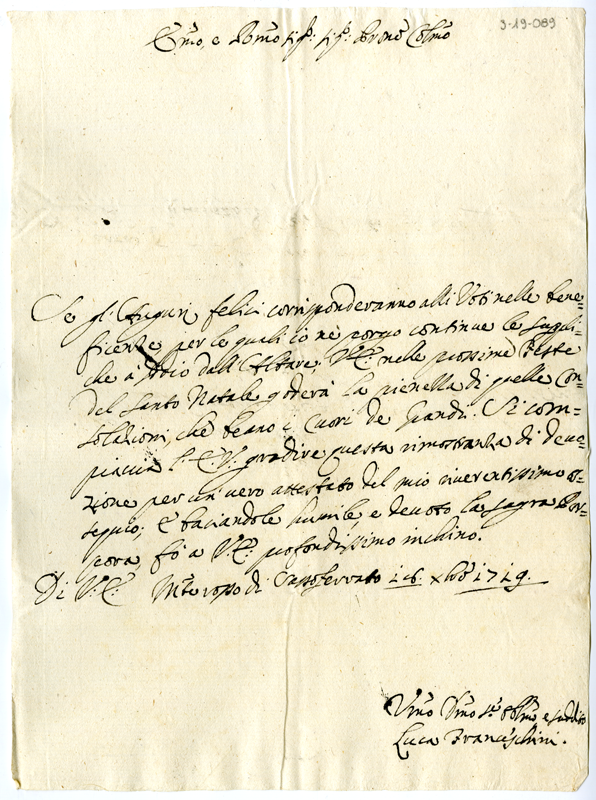 9-19-089
Em̃o, e Rm̃o Sig:r Sig:r Prone Colmo
Se gl'Auguri felici corrisponderanno alli Voti nelle bene=
ficenze per le quali io ne porgo continue le suppli=
che à Iddio dall'Altare; V.E. nelle prossime Feste
del Santo Natale goderà la pienella di quelle con=
solazioni, che beano i Cuori de Grandi. Si com=
piaccia l'E.V. gradire questa rimostranza di devo=
zione per un vero attestato del mio riverentissimo os=
sequio; E baciandole humile, e devoto la sagra Por=
pora, fò a V.E. profondissimo inchino.
Di V.E. di Sassoferrato 16. Xbre 1719.
Umo Dmo se: Oblmo e suddito
Luca Franceschini.